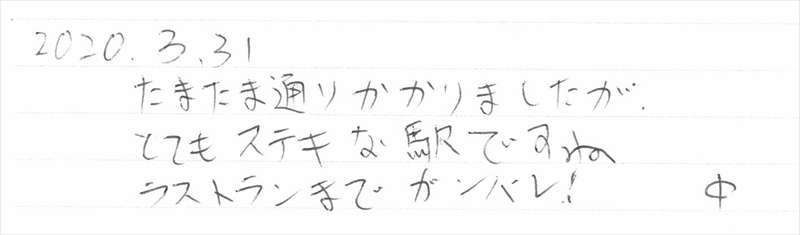 2020.3.31
たまたま通りかかりましたが、
とてもステキな駅ですね
ラストランまでガンバレ! 中